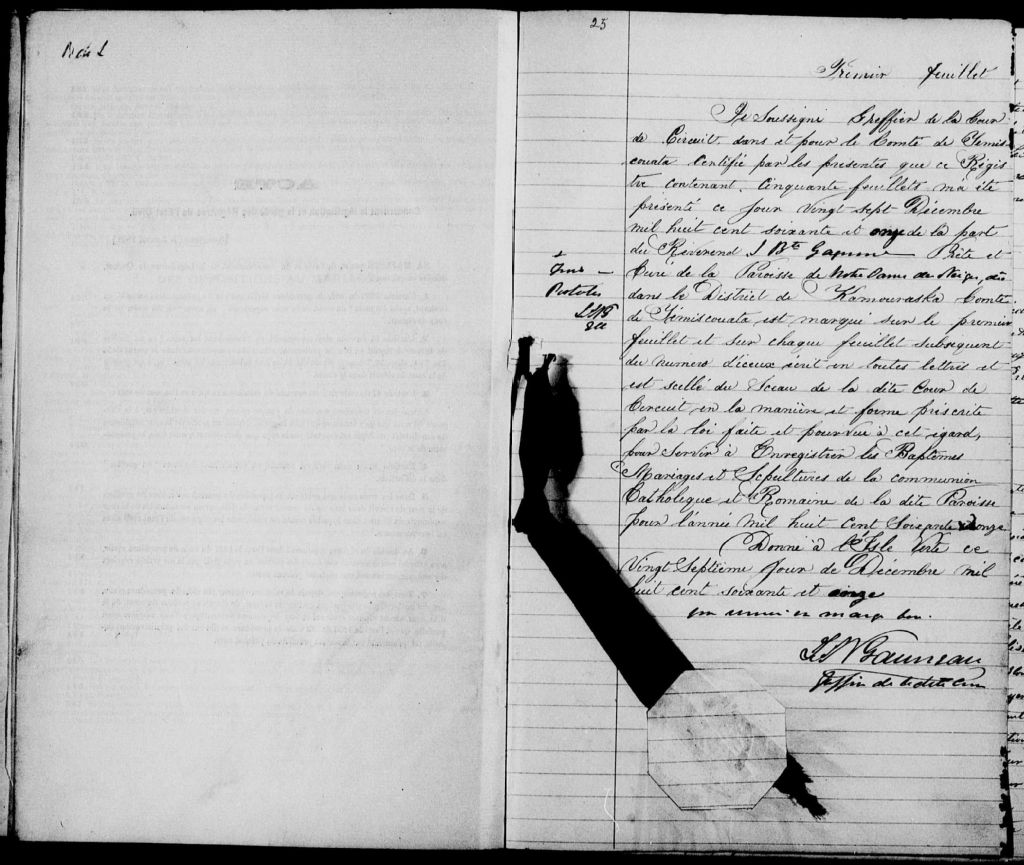 25
Premier feuillet
Je Soussigné Greffier de la Cour
de Circuit, dans et pour le Comté de Temis
couata Certifié par les presentes que ce Régis
tre contenant Cinquante feuillets m'a été
présenté ce Jour Vingt Sept Décembre
mil huit cent soixante et onze de la part
du Révérend J Bte Gagnon Prêtre et
Curé de la Paroisse de Notre Dame des Neiges, des
dans le District de Kamouraska Comté
Trois —
Pistoles
de Temiscouata, est marqué sur le premier
feuillet et sur chaque feuillet subsequent
du numéro d'iceux écrit en toutes lettres et
est scellé du Sceau de la dite Cour de
Circuit en la manière et forme préscrite
par la loi faite et pourvue à cet égard,
pour servir à Enregistrer les Baptêmes
Mariages et Sépultures de la communion
Catholique et Romaine de la dite Paroisse
pour l'année mil huit cent Soixante et onze
Donné à l'Isle Verte ce
Vingt Septième Jour de Décembre mil
huit cent soixante et onze
un renvoi en marge bon.
Gauvreau
Greffier de la dite Cour
ACTE